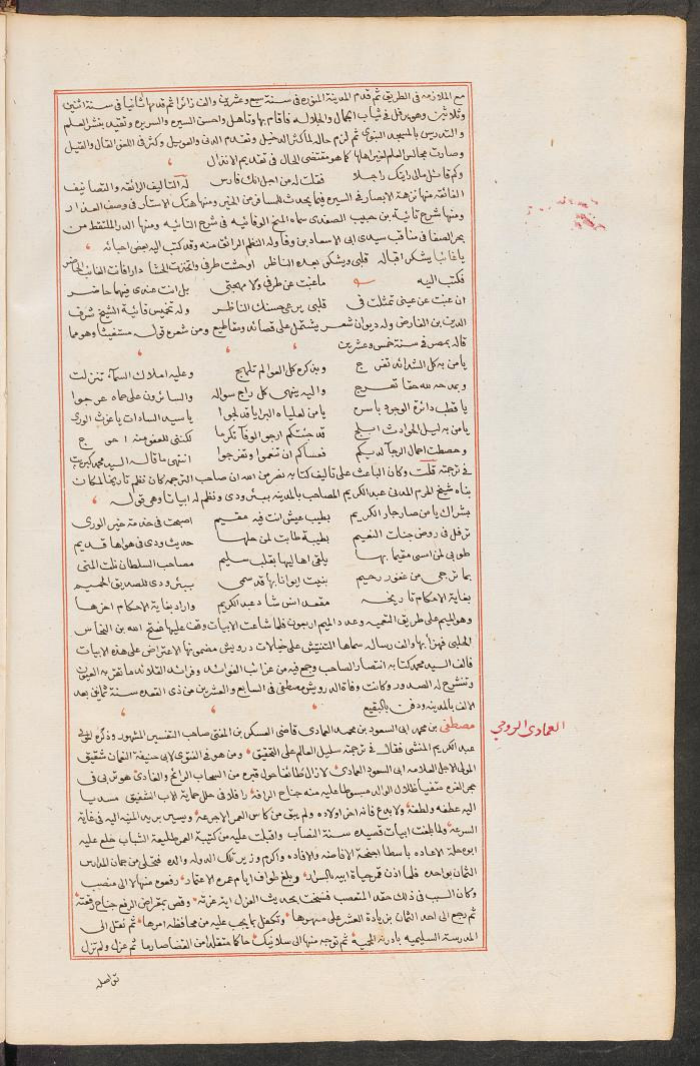 مع الملازمه فى الطريق ثم قدم المدينة المنوره فى سنة سبع وعشرين والف زائرا ثم قدمها ثانيا فى سنة اثنين
وثلاثين وهو يرفل فى ثياب الجمال والجلاله فاقام بها وتاهل واحسن السيره والسريره وتقيد بنشر العلم
والتدريس بالمسجد النبوى ثم لزم حاله لما كثر الدخيل وتقدم الدنى والعويل وكثر فى اللغو القال والقيل
وصارت مجالس العلم لغير اهلها كما هو مقتضى الحال فى تقديم الانذال
وكم قائل مالى رايتك راجلا فقلت له من اجل انك فارس له التاليف الرائقه والتصانيف
الفائقه منها نزهة الابصار فى السير فيما يحدث للمسافر من الخير ومنها هتك الاستار فى وصف العذار
ومنها شرح تائية بن حبيب الصفدى سماه المنح الوفائيه فى شرح التائيه ومنها الدر الملتقط من
بحر الصفا فى مناقب سيدى ابى الاسعاد بن وفا وله النظم الرائق منه وقد كتب اليه بعض احبائه
يا غائبا يشكر اقباله قلبى ويشكو بعده الناظر اوحشت طرفى واتخذت الحشا دارا فانت الغائب الحاضر
فكتب اليه ما غبت عن طرفى ولا مهجتى بل انت عندى فيهما حاضر
ان غبت عن عينى تمثلت فى قلبى يرعى حسنك الناظر وله تخميس فائية الشيخ شرف
الدين بن الفارض وله ديوان شعر يشتمل على قصائد ومقاطيع ومن شعره قوله مستغيثا وهو مما
قاله بمصر فى سنة خمس وعشرين
يا من به كل الشدائد تفرج وبذكره كل العوالم تلهج وعليه املاك السماء تنزلت
وبمدحه لله حقا تعرج واليه ينهى كل راج سواله والسائرون على حماه عرجوا
يا قطب دائرة الوجود باسره يا من لعلياه البرايا قد لجوا يا سيد السادات يا غوث الورى
يا من به ليل الحوادث ابلج قد جئتكم ارجو الوفا تكرما لكننى للعفو منه احوج
وحططت احمال الرجا لديكم فعساكم ان تنعموا وتفرجوا انتهى ما قاله السيد محمد كبريت
فى ترجمته قلت وكان الباعث على تاليف كتابه نصر من الله ان صاحب الترجمه كان نظم تاريخا لمكان
بناه شيخ الحرم المدنى عبد الكريم المصاحب بالمدينه ببئر ودى ونظم له ابياتا وهى قوله
بشراك يا من صار جار الكريم بطيب عيش انت فيه مقيم اصبحت فى خدمة خير الورى
ترفل فى روض جنات النعيم بطيبة طابت لمن حلها حديث ودى فى هواها قديم
طوبى لمن امسى مقيما بها يلقى اهاليها بقلب سليم مصاحب السلطان نلت المنى
بما ترجى من غفور رحيم بنيت ايوانا بها قد سمى ببئر ودى للصديق الحميم
بغاية الاحكام تاريخه مقعد انس شاد عبد الكريم واراد بغاية الاحكام اخرها
وهو الميم على طريق التعميه وعدد الميم اربعون فلما شاعت الابيات وقف عليها فتح الله بن النحاس
الحلبى فهزأ بها والف رساله سماها التفتيش على خيالات درويش مضمونها الاعتراض على هذه الابيات
فالف السيد محمد كتابه انتصار الصاحب وجمع فيه من غرائب الفوائد وفرائد القلائد ما تقر به العيون
وتنشرح له الصدور وكانت وفاة الدرويش مصطفى فى السابع والعشرين من ذى القعده سنة ثمانين بعد
الالف بالمدينه ودفن بالبقيع
العمادى الرومى
مصطفى بن محمد ابى السعود بن محمد العمادى قاضى العسكر بن المفتى صاحب التفسير المشهور وذكره المولى
عبد الكريم المنشى فقال فى ترجمته سليل العالم على التحقيق ومن هو فى الفتوى لابى حنيفة النعمان شقيق
المولى الاجل العلامه ابى السعود العمادى لا زال طائفا حول قبره من السحاب الرائح والغادى هو تربى فى
حجر العزه متفيا ظلال الوالد مبسوطا عليه منه جناح الرافه رافلا فى حلل حماية الاب الشفيق مسديا
اليه عطفه ولطفه ولا بدع فانه اخر اولاده ولم يبق من كاس العمر الا جرعه ويسير بريد المنيه اليه فى غاية
السرعه ولما بلغت ابيات قصيده سنة النصاب واقبلت عليه من كتيبة العمر طليعة الشباب خلع عليه
ابوه حلة الاعاده باسطا اجنحة الافاضه والافاده واكرم وزير تلك الدوله والده فتحلى من جمان المدارس
الثمان بواحده فلما اذن قمر حياة ابيه بالسرار وبلغ طواف ايام عمره الاعتماد رفعوه منها لا الى منصب
وكان السبب فى ذلك حقد المتعصب فنسخت بحديث العزل اية عزته وقص بمقراض الرفع جناح رفعته
ثم رجع الى احد الثمان بزيادة العشر على مهوها وتكفل بما يجب عليه من محافظة امرها ثم نقل الى
المدرسة السليميه بادرنه المحميه ثم توجه منها الى سلانيك حاكما متقلدا من القضا صارما ثم عزل ولم تزل
تواصله